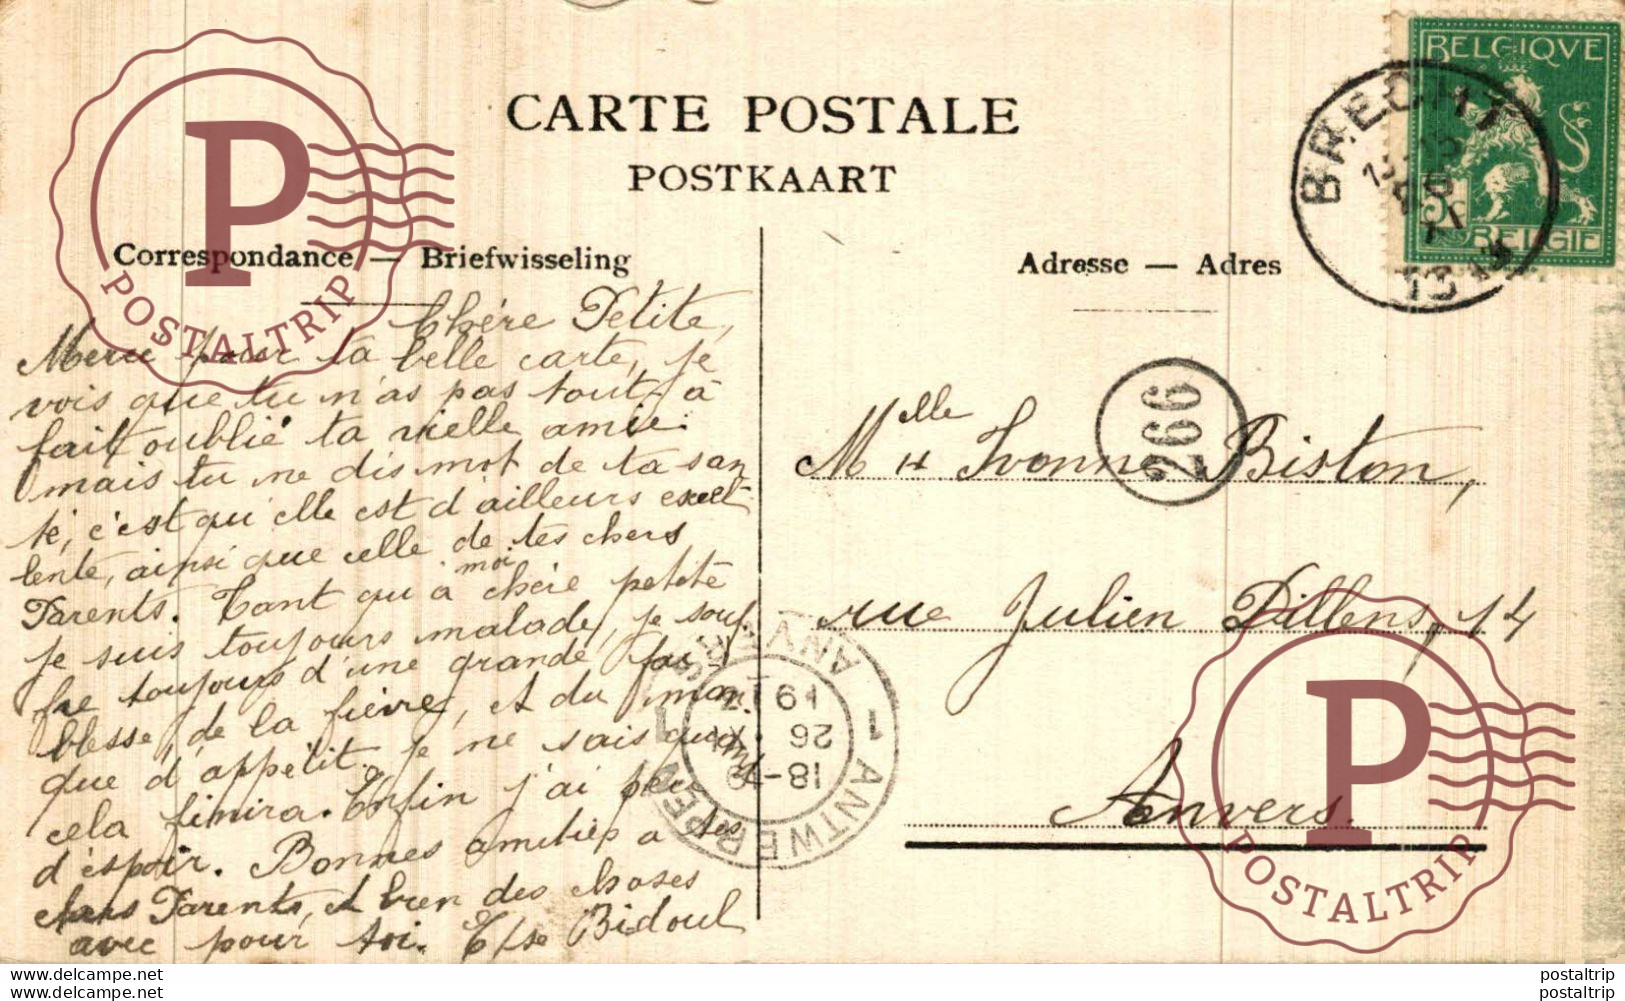 CARTE POSTALE
POSTKAART
Correspondance — Briefwisseling
Adresse — Adres
Chère Petite,
Merci pour ta belle carte, je
vois que tu n'as pas tout-à
fait oublié ta vieille amie.
mais tu ne dis mot de ta san
té, c'est qu'elle est d'ailleurs excel-
lente, ainsi que celle de tes chers
Parents. Tant qu'à moi chère petite
je suis toujours malade, je souf-
fre toujours d'une grande fai-
blesse, de la fièvre, et du man-
que d'appétit. je ne sais quand
cela finira. Enfin j'ai peu
d'espoir. Bonnes amitiés a tes
chers Parents, et bien des choses
avec pour toi. Bidoul
Mlle Ivonne Biston,
rue Julien Dillens, 14
Anvers.
BELGIQVE
BELGIË
BRECHT
13
266
1 ANTWERPEN 1
ANVERS
18-19
26
19
P
POSTALTRIP
P
POSTALTRIP
delcampe.net
delcampe.net
postaltrip
postaltrip